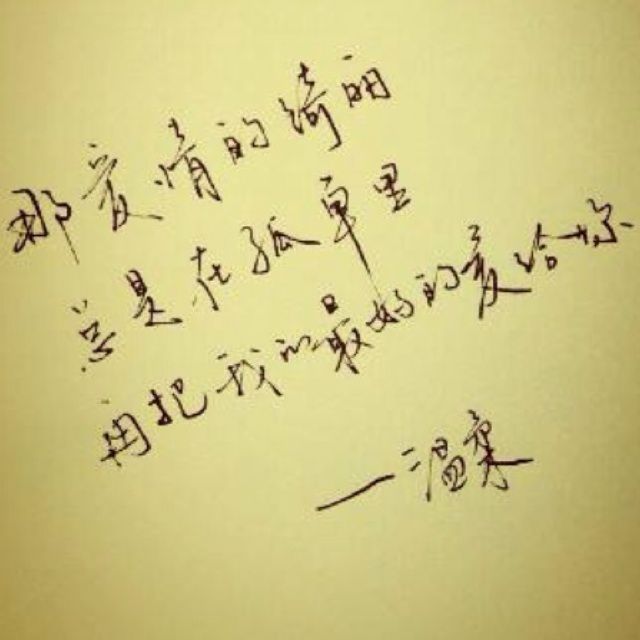 那爱情的绮丽
总是在孤单里
再把我的最好的爱给你
一温柔